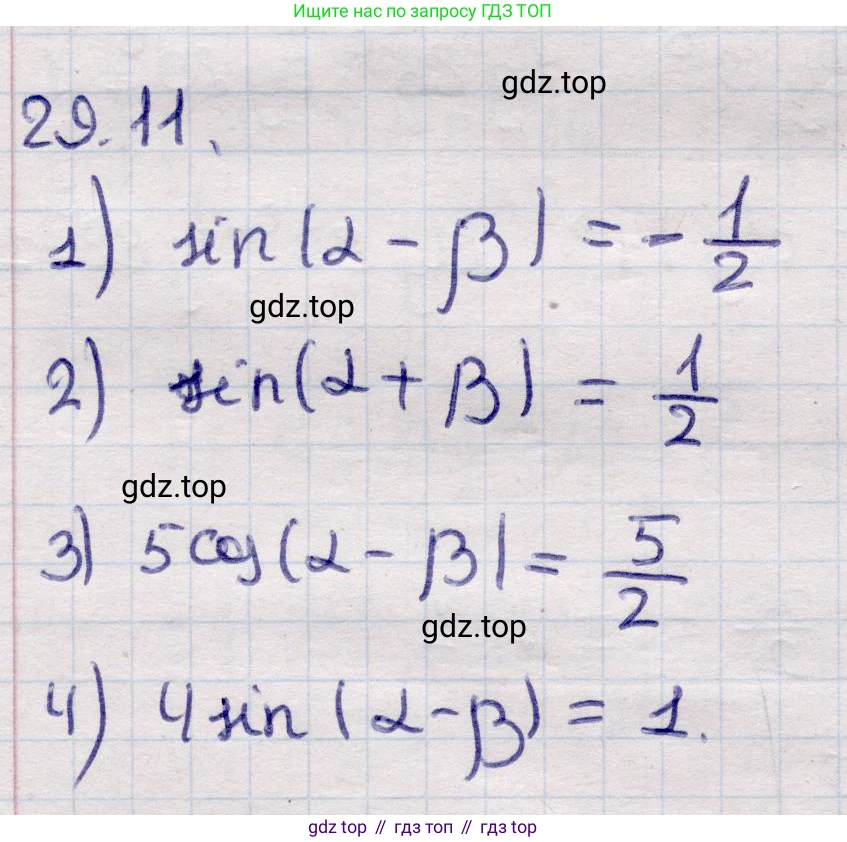 Ищите нас по запросу ГДЗ ТОП
gdz.top
29.11.
1) sin(α - β) = - 1/2
gdz.top
2) sin(α + β) = 1/2
gdz.top
3) 5cos(α - β) = 5/2
gdz.top
4) 4sin(α - β) = 1.
gdz top // гдз топ // gdz top